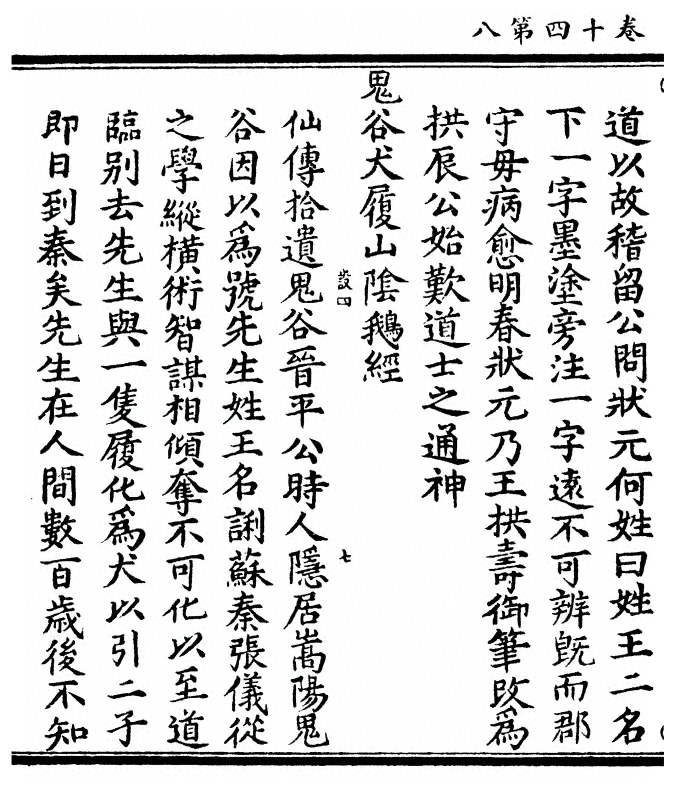 卷十四第八
道以故稽留公問狀元何姓曰姓王二名
下一字墨塗旁注一字遠不可辨既而郡
守毋病愈明春狀元乃王拱壽御筆改爲
拱辰公始歎道士之通神
鬼谷犬履山陰鵝經
設四
七
仙傳拾遺鬼谷晉平公時人隱居嵩陽鬼
谷因以爲號先生姓王名詶蘇秦張儀從
之學縱橫術智謀相傾奪不可化以至道
臨别去先生與一隻履化爲犬以引二子
即日到秦矣先生在人間數百歲後不知